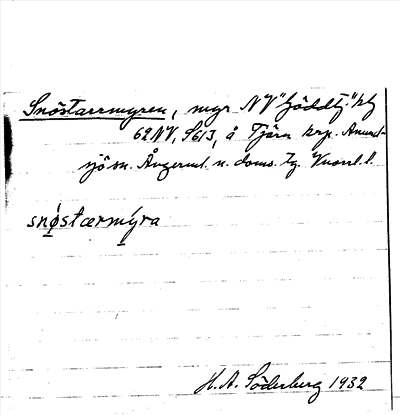 Snöstarrmyren, myr NV "Gäddtj." ktg
62NV, S613, å Tjärn krp. Anund-
sjö sn. Ångerml. n. doms. tg. Vnorrl. l.
snǿstærmýra
H.A. Söderberg 1932